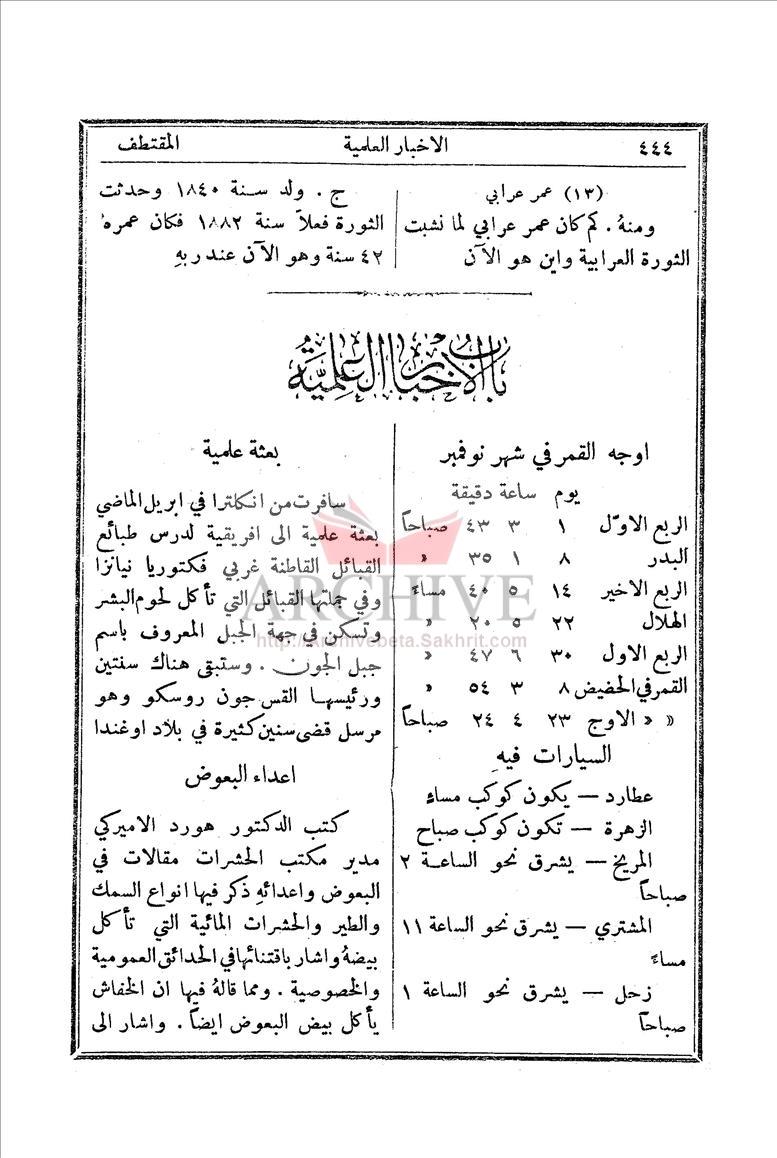 ٤٤٤ الاخبار العلمية المقتطف
(١٣) عمر عرابي
ومنهُ . كم كان عمر عرابي لما نشبت
الثورة العرابية واين هو الآن
ج . ولد سنة ١٨٤٠ وحدثت
الثورة فعلاً سنة ١٨٨٢ فكان عمرهُ
٤٢ سنة وهو الآن عند ربهِ
باب الاخبار العلمية
اوجه القمر في شهر نوفمبر
يوم ساعة دقيقة
الربع الاوّل ١ ٣ ٤٣ صباحاً
البدر ٨ ١ ٣٥ «
الربع الاخير ١٤ ٥ ٤٠ مساءً
الهلال ٢٢ ٥ ٢٠ «
الربع الاول ٣٠ ٦ ٤٧ «
القمر في الحضيض ٨ ٣ ٥٤ «
« « الاوج ٢٣ ٤ ٢٤ صباحاً
السيارات فيهِ
عطارد — يكون كوكب مساءٍ
الزهرة — تكون كوكب صباح
المريخ — يشرق نحو الساعة ٢
صباحاً
المشتري — يشرق نحو الساعة ١١
مساءً
زحل — يشرق نحو الساعة ١
صباحاً
بعثة علمية
سافرت من انكلترا في ابريل الماضي
بعثة علمية الى افريقية لدرس طبائع
القبائل القاطنة غربي فكتوريا نيانزا
وفي جملتها القبائل التي تأكل لحوم البشر
وتسكن في جهة الجبل المعروف باسم
جبل الجون . وستبقى هناك سنتين
ورئيسها القس جون روسكو وهو
مرسل قضى سنين كثيرة في بلاد اوغندا
اعداء البعوض
كتب الدكتور هورد الاميركي
مدير مكتب الحشرات مقالات في
البعوض واعدائهِ ذكر فيها انواع السمك
والطير والحشرات المائية التي تأكل
بيضهُ واشار باقتنائها في الحدائق العمومية
والخصوصية . ومما قالهُ فيها ان الخفاش
يأكل بيض البعوض ايضاً . واشار الى
ARCHIVE
http://Archivebeta.Sakhrit.com